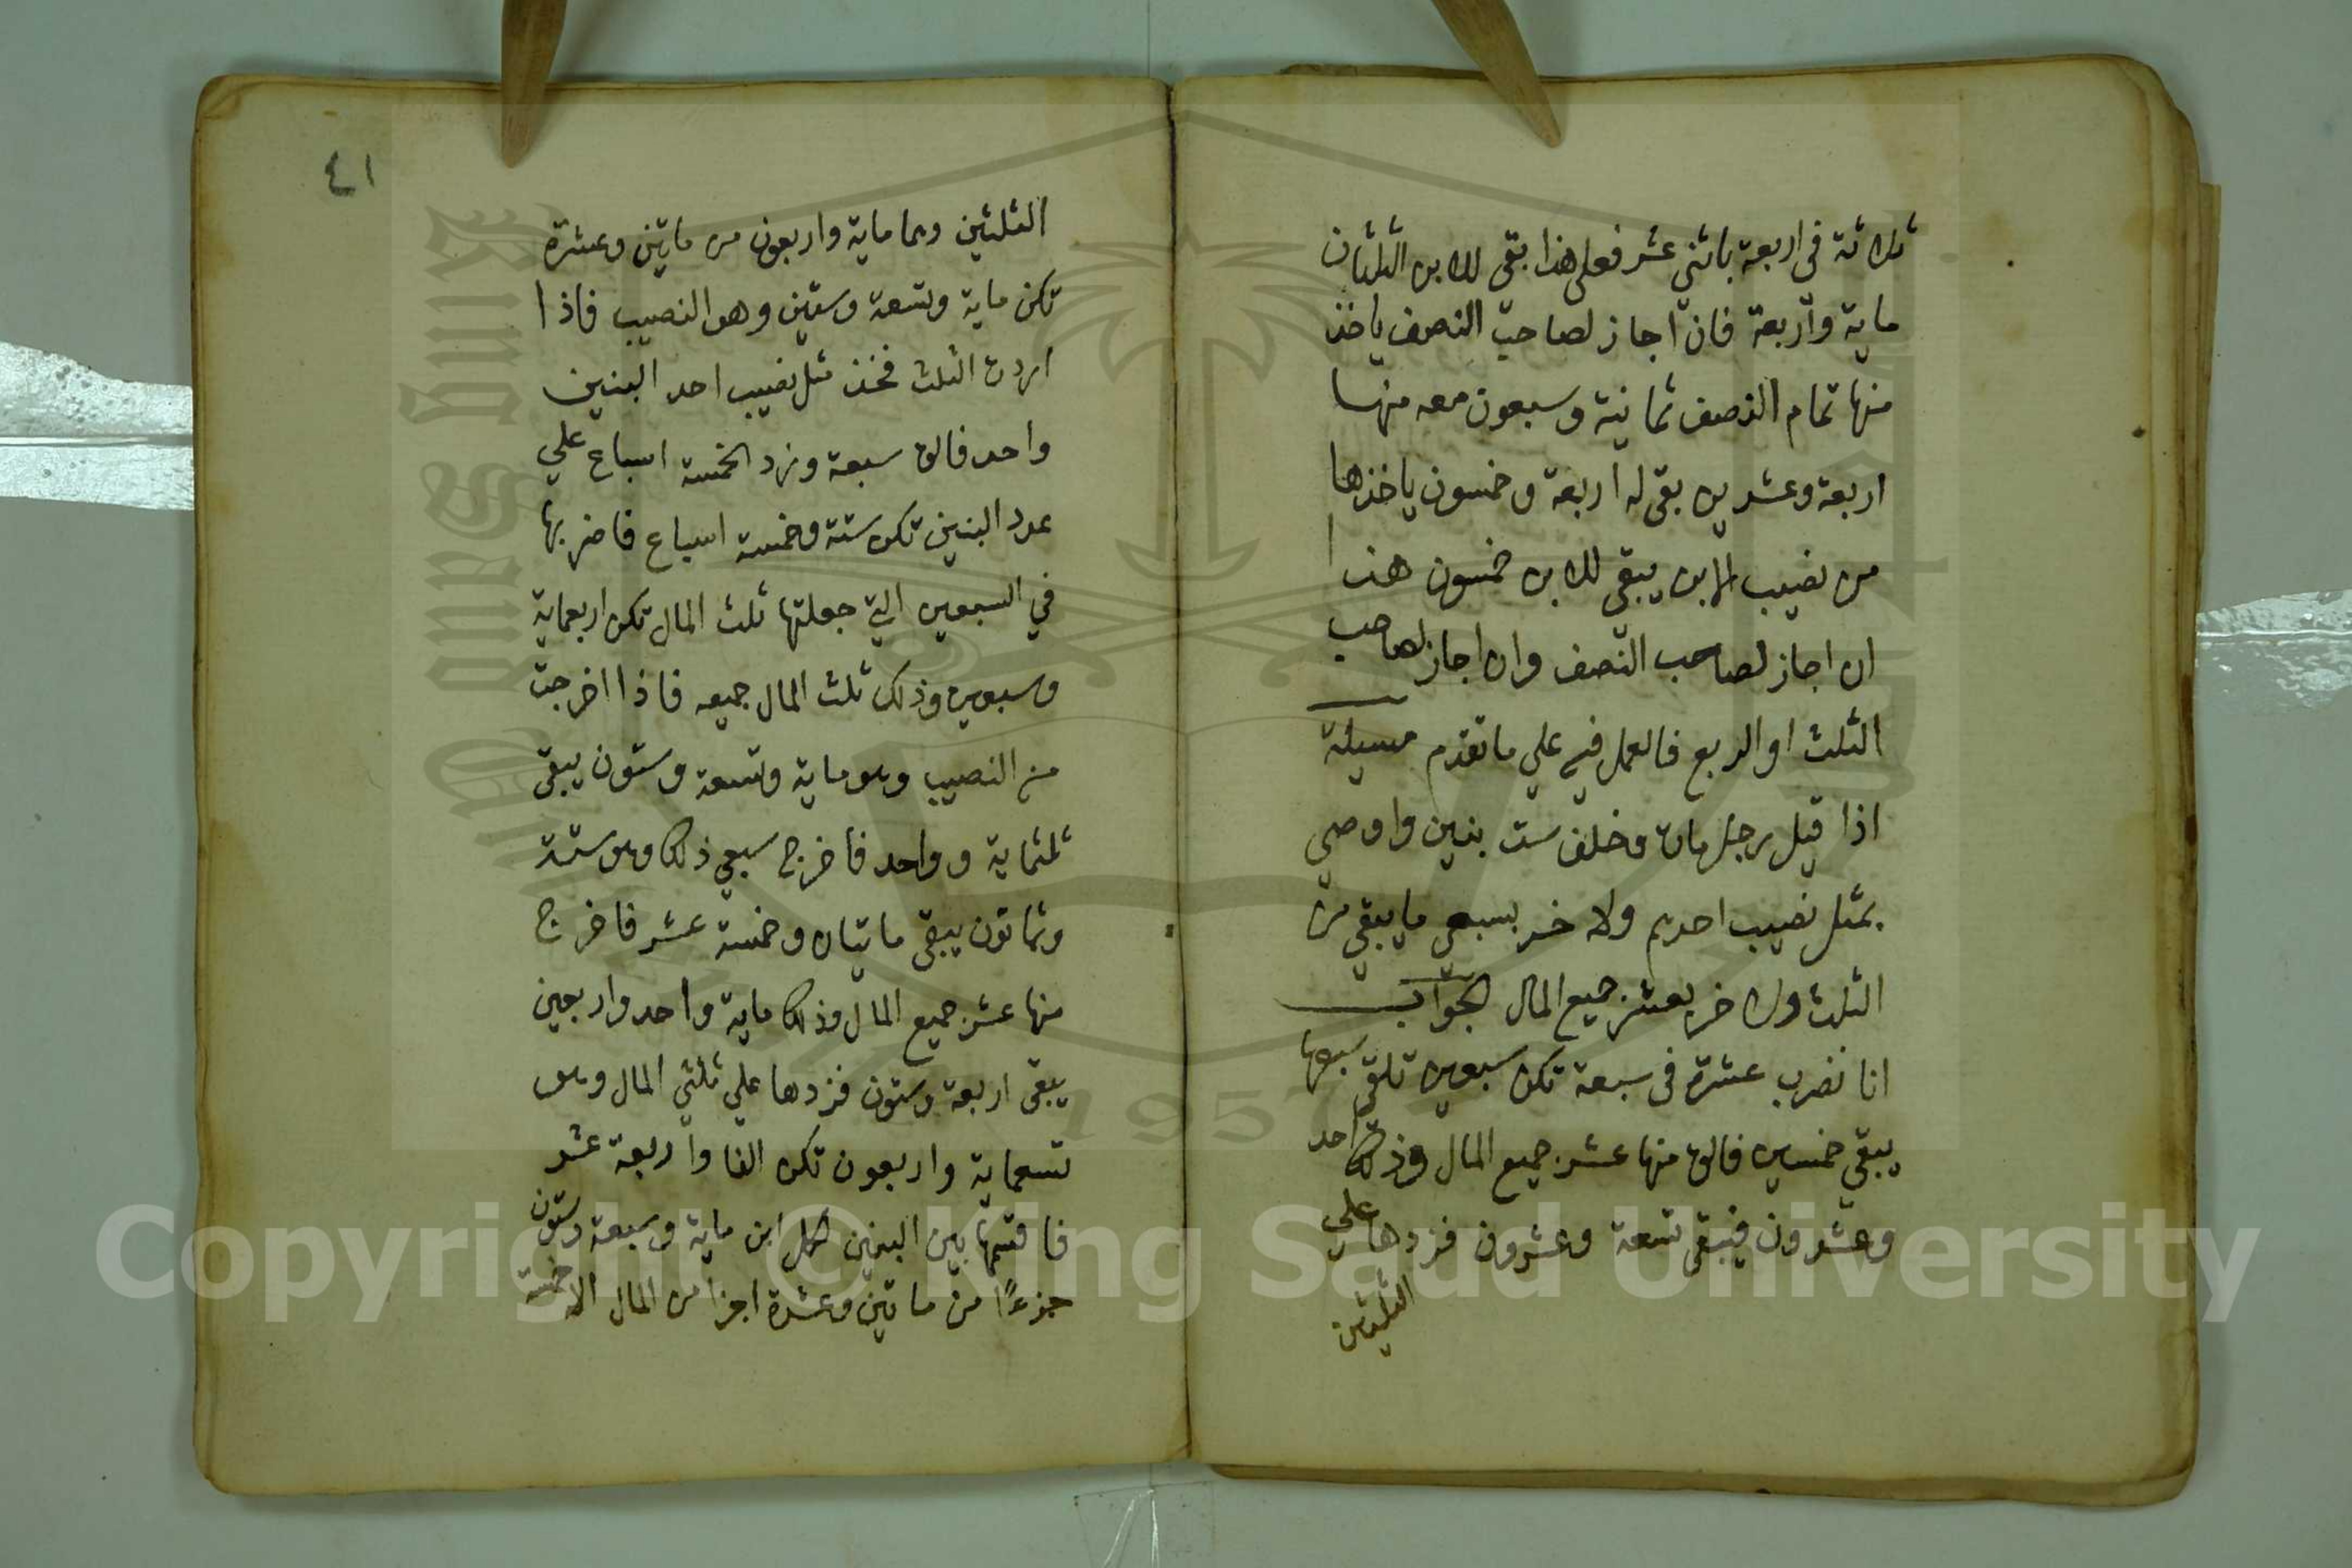 ثلاثة في اربعة باثني عشر فعلى هذا بقي للابن الثلثان
ماية واربعة فان اجاز لصاحب النصف ياخذ
منها تمام النصف ثمانية وسبعون معه منها
اربعة وعشرين بقي له اربعة وخمسون ياخذها
من نصيب الابن يبقي للابن خمسون هذا
ان اجاز لصاحب النصف وان اجاز لصاحب
الثلث او الربع فالعمل فيه علي ما تقدم مسيلة
اذا قيل رجل مات وخلف ست بنين واوصي
بمثل نصيب احدهم ولاخر بسبعي ما يبقي من
الثلث ولاخر بعشر جميع المال الجواب
انا نضرب عشرة في سبعة تكن سبعين تلقي سبعها
يبقي خمسين فالق منها عشر جميع المال وذلك احد
وعشرون فيبقي تسعة وعشرون فزدها علي
الثلثين
٤١
الثلثين وهما ماية واربعون من ماتين وعشرة
تكن ماية وتسعة وستين وهو النصيب فاذا
اردت الثلث فخذ مثل نصيب احد البنين
واحد فالق سبعة وزد الخمسة اسباع علي
عدد البنين تكن ستة وخمسة اسباع فاضربها
في السبعين التي جعلتها ثلث المال تكن اربعماية
وسبعين وذلك ثلث المال جميعه فاذا اخرجت
منه النصيب وهو ماية وتسعة وستون يبقي
ثلثماية وواحد فاخرج سبعي ذلك وهو ستة
وثمانون يبقي مايتان وخمسة عشر فاخرج
منها عشر جميع المال وذلك ماية واحد واربعين
يبقي اربعة وستون فزدها علي ثلثي المال وهو
تسعماية واربعون تكن الفا واربعة عشر
فاقسمها بين البنين لكل ابن ماية وسبعة وستون
جزءًا من ماتين وعشرة اجزا من المال الا خمسة
Copyright © King Saud University
King Saud University
1957